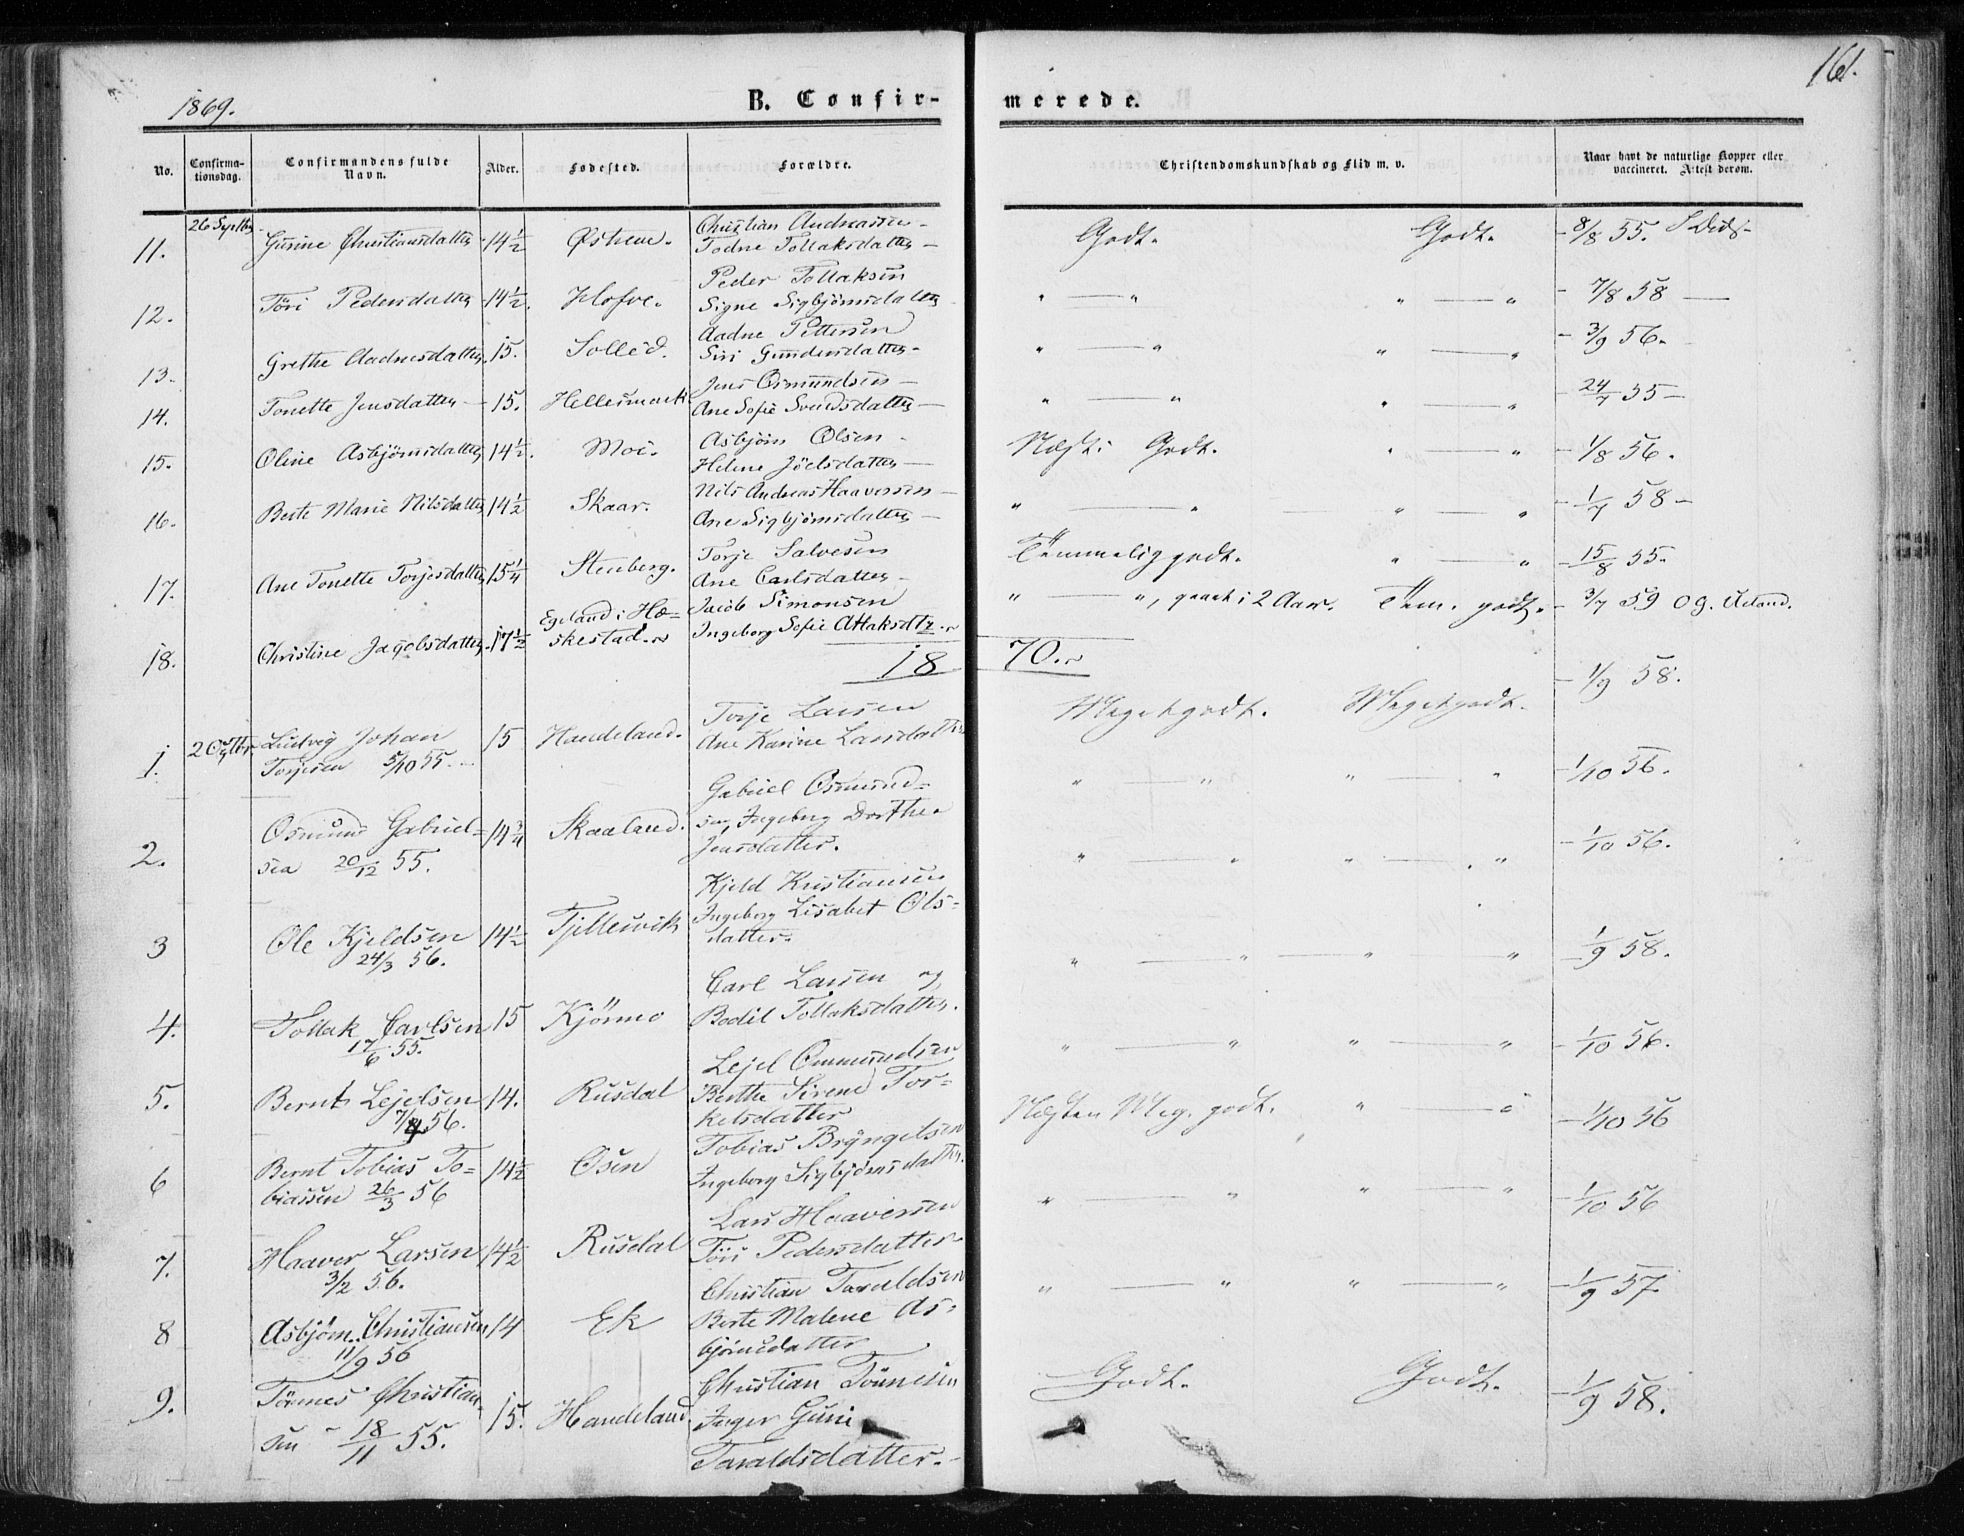 1869.
B. Confir-
merede.
161.
No.
Confirma-
tionsdag.
Confirmandens fulde
Navn.
Alder.
Fødested.
Forældre.
Christendomskundskab og Flid m. v.
Naar havt de naturlige Kopper eller
vaccineret. Attest derom.
11. 26 Septbr Gurine Christiansdatter 14 1/2 Østrem. Christian Andreassen
Todne Tollaksdatter Godt. Godt. 8/8 55.
12. Töri Pedersdatter 14 1/2. Hofve. Peder Tollaksen
Signe Sigbjørnsdatter " — " " — " 7/8 58 —
13. Grethe Aadnesdatter 15. Solleid. Aadne Pettersen
Siri Gundersdatter " — " " — " 3/9 56.
14. Tonette Jensdatter 15. Hellesmark Jens Osmundsen
Ane Sofie Svendsdatter " — " " — " 24/7 55
15. Oline Asbjørnsdatter 14 1/2. Moi. Asbjørn Olsen
Helene Jöelsdatter Næst: Godt. " — " 1/8 56.
16. Berte Marie Nilsdatter 14 1/2 Skaar. Nils Andreas Haaversen
Ane Sigbjørnsdatter " — " " — " 1/7 58
17. Ane Tonette Torjesdatter 15 1/4 Stenberg. Torje Salvesen
Ane Carlsdatter Temmelig godt. " — " 15/8 55.
18. Christine Jacobsdatter 17 1/2 Egeland i He-
skestad. Jacob Simonsen
Ingeborg Sofie Atlaksdtr. " — ", gaaet i 2 Aar. Tem. godt. 3/7 59 O g. Ueland.
18 70.
1. 2 Octbr Ludvig Johan
Torjesen 5/10 55. 15 Handeland. Torje Larsen
Ane Karine Larsdatter Meget godt. Meget godt. 1/9 58.
2. Osmund Gabriel-
sen 20/12 55. 14 3/4 Skaaland. Gabriel Osmund-
sen, Ingeborg Dorthea
Jensdatter. " — " " — " 1/10 56.
3 Ole Kjeldsen
24/3 56. 14 1/2 Tjellesvik Kjeld Kristiansen
Ingeborg Lisabet Ols-
datter. " — " " — " 1/10 56.
4. Tollak Carlsen
17/6 55. 15 Kjörmo Carl Larsen og
Bodil Tollaksdatter. " — " — " 1/9 58.
5. Bernt Lejelsen
7/4 56. 14. Rusdal Lejel Ommundsen
Berthe Sirene Tor-
kelsdatter " — " " — " 1/10 56.
6 Bernt Tobias To-
biassen 26/3 56 14 1/2 Osen Tobias Bryngelsen
Ingeborg Sigbjørnsdatter. Næsten Meg. godt. " — " 1/10 56
7. Haaver Larsen
3/2 56. 14 1/2 Rusdal Lars Haaversen
Töri Pedersdatter " — " " — " 1/10 56
8 Asbjørn Christiansen
11/9 56 14 Ek Christian Taraldsen
Berte Malene As-
bjørnsdatter " — " " — " 1/9 57.
9. Tönnes Christian-
sen 18/11 55. 15. Handeland. Christian Tönnesen
Inger Guri
Taraldsdatter. Godt. Godt. 1/9 58.